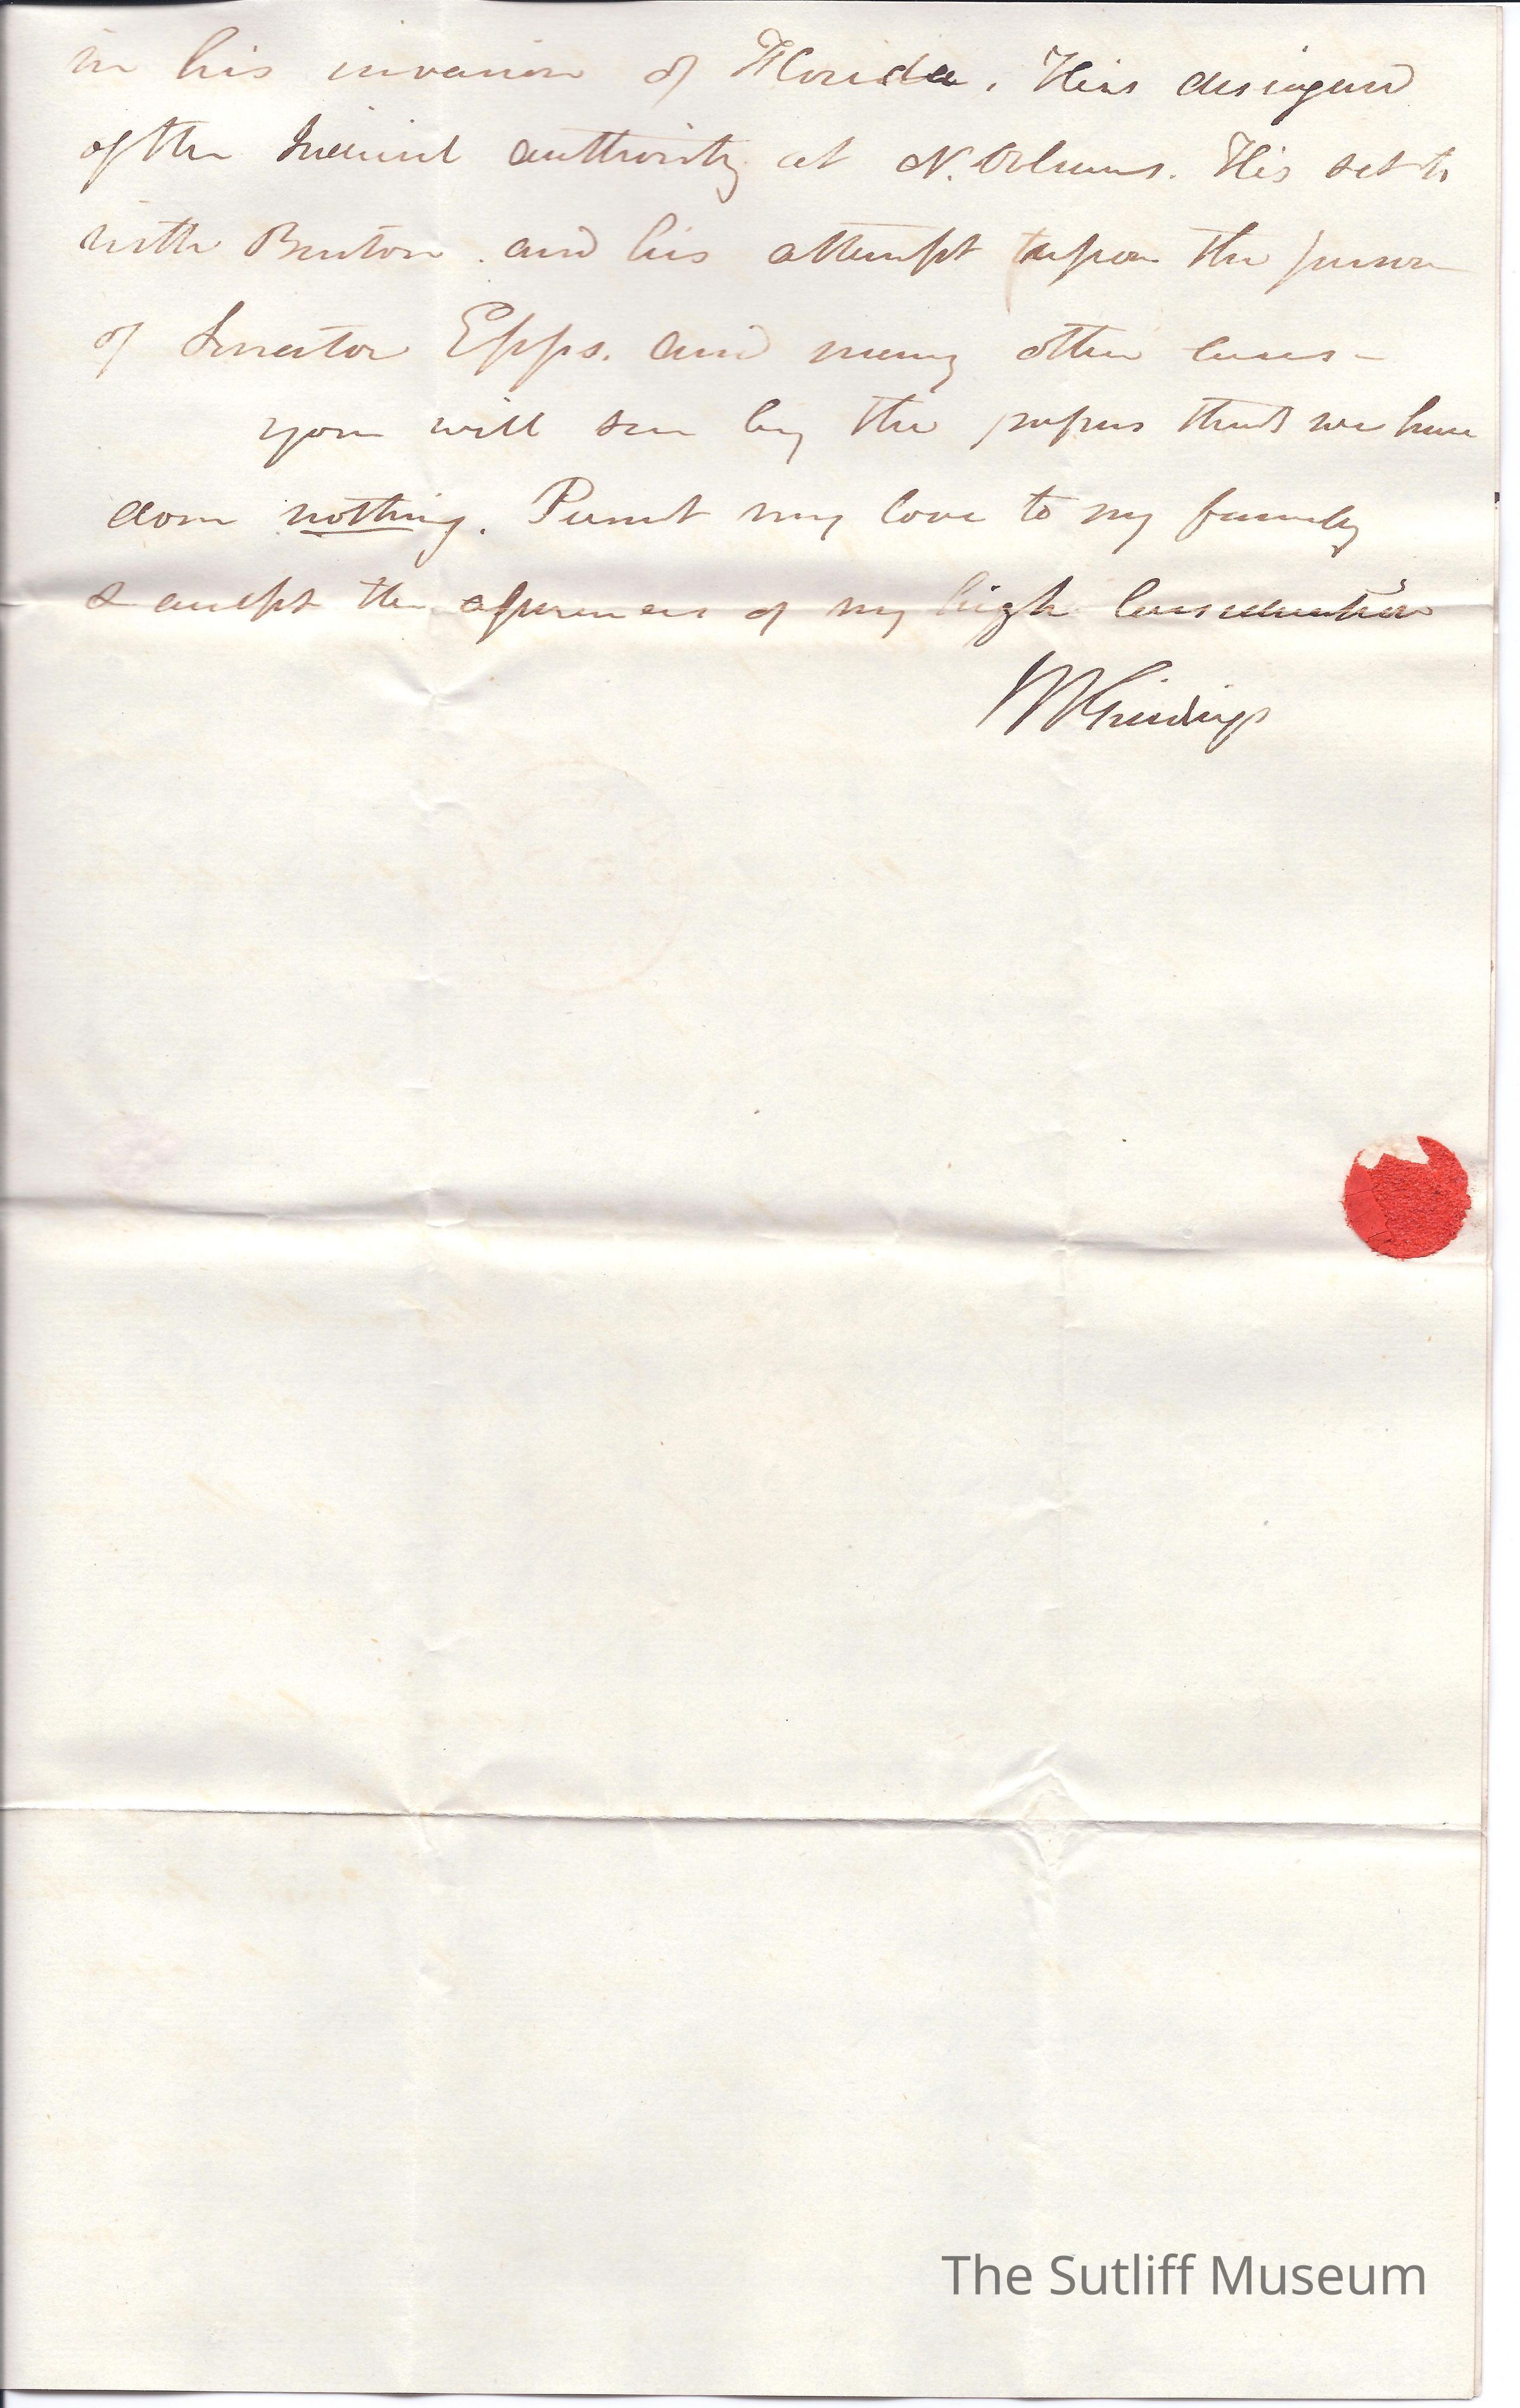 in his invasion of Florida. His disregard
of the Judicial authority at N. Orleans. His set to
with Benton. and his attempt upon the person
of Senator Epps. and many other cases—
you will see by the papers that we have
done nothing. Permit my love to my family
& accept the assurances of my high consideration
Giddings
The Sutliff Museum